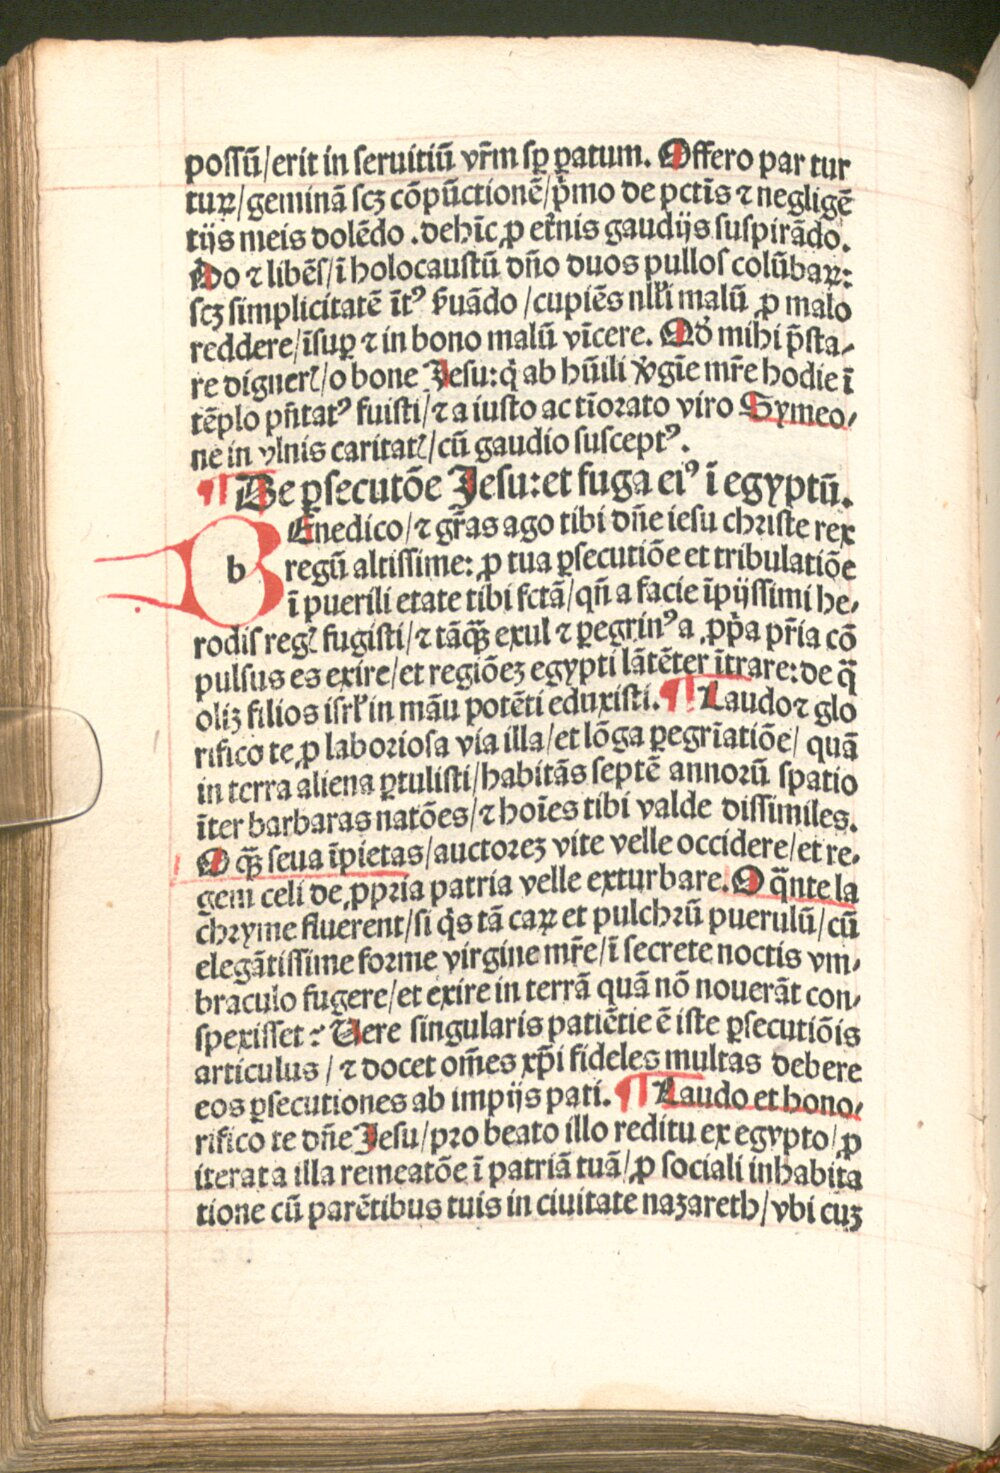 possū/erit in seruitiū vr̄m sꝑ ꝑatum. Offero par tur
tuꝝ/geminā scꝫ cōpūctionē/p̄mo de pctīs ⁊ negligē
tijs meis dolēdo .dehīc ꝓ et̄nis gaudijs suspirādo.
Do ⁊ libēs/ī holocaustū dn̄o duos pullos colūbaꝝ:
scꝫ simplicitatē īt⁹ ẜuādo/cupiēs nll̓i malū ꝓ malo
reddere/īsuꝑ ⁊ in bono malū vīcere. Qd̓ mihi p̄sta-
re digneri̓/o bone Jesu:q̇ ab hūili v̓gīe mr̄e hodie ī
tēplo pn̄tat⁹ fuisti/⁊ a iusto ac tīorato viro Symeo-
ne in vlnis caritatꝭ/cū gaudio suscept⁹.
¶ De ꝑsecutōe Jesu:et fuga ei⁹ ī egyptū.
b Enedico/⁊ gr̄as ago tibi dn̄e iesu christe rex
regū altissime: ꝓ tua ꝑsecutiōe et tribulatiōe
ī puerili etate tibi fctā/qn̄ a facie īpijssimi he-
rodis regꝭ fugisti/⁊ tāqꝫ̄ exul ⁊ ꝑegrin⁹ a ꝓp̄a pr̄ia cō
pulsus es exire/et regiōeꝫ egypti lātēter ītrare:de q̄
oliꝫ filios isrl̓ in māu potēti eduxisti. ¶ Laudo ⁊ glo
rifico te ꝓ laboriosa via illa/et lōga ꝑegrīatiōe/ quā
in terra aliena ꝑtulisti/habitās septē annorū spatio
īter barbaras natōes/⁊ hoīes tibi valde dissimiles.
O qꝫ̄ seua īpietas/auctoreꝫ vite velle occidere/et re-
gem celi de ꝓpria patria velle exturbare. O q̄nte la
chryme fluerent/si q̇s tā caꝝ et pulchrū puerulū/cū
elegātissime forme virgine mr̄e/ī secrete noctis vm-
braculo fugere/et exire in terrā quā nō nouerāt con-
spexisset:⁊ Vere singularis patiētie ē iste ꝑsecutiōis
articulus/⁊ docet om̄es xp̄i fideles multas debere
eos ꝑsecutiones ab impijs pati. ¶ Laudo et hono-
rifico te dn̄e Jesu/pro beato illo reditu ex egypto/ꝓ
iterata illa remeatōe ī patriā tuā/ꝓ sociali inhabita
tione cū parētibus tuis in ciuitate nazareth/vbi cuꝫ